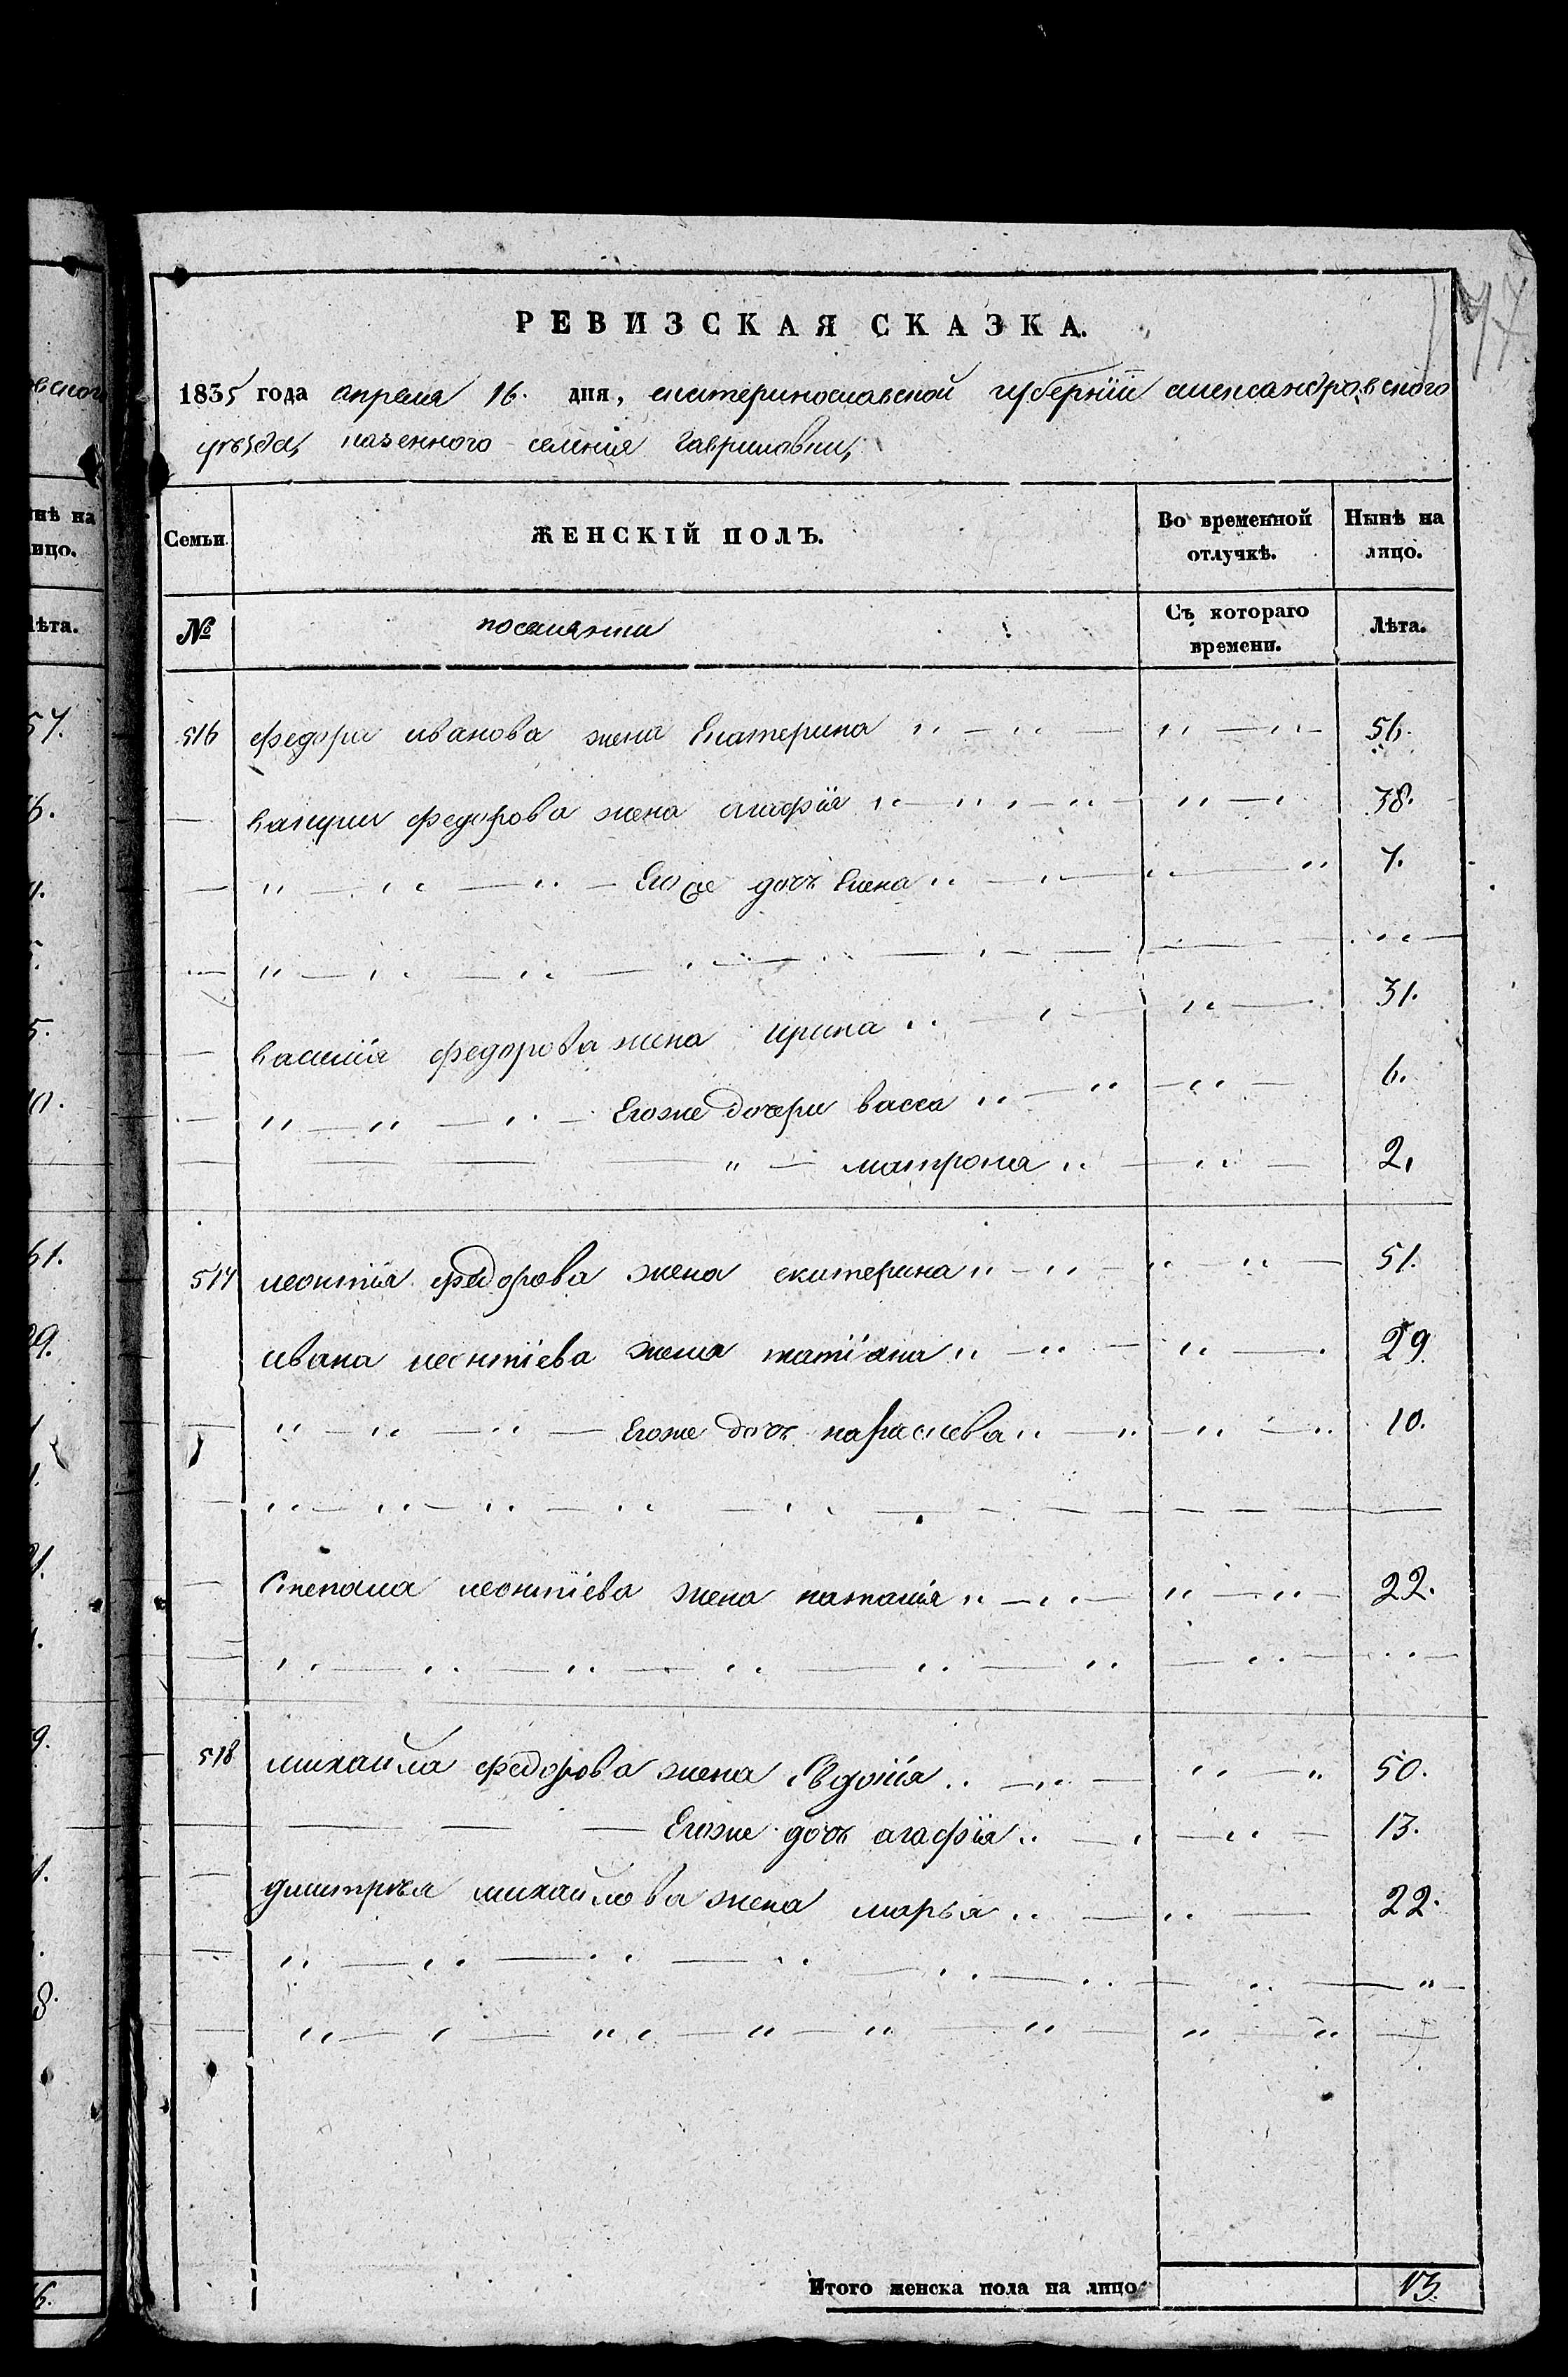 овского
нѣ на
ицо.
Лѣта.
177
РЕВИЗСКАЯ СКАЗКА.
1835 года апреля 16. дня, екатеринославской губернїи александровского
уѣзда, казенного селенія Гавриловки,
Семьи. ЖЕНСКІЙ ПОЛЪ. Во временной отлучкѣ. Нынѣ на лицо.
№ поселянки Съ котораго времени. Лѣта.
516 федора иванова жена Екатерина 56.
федорова жена агафїя 38.
Егоже дочь Елена 7.
василїя федорова жена ирина 31.
Егоже дочери васса 6.
матрона 2.
517 леонтїя федорова жена екатерина 51.
ивана леонтїева жена татїана 29.
Егоже дочь параскева 10.
Степана леонтїева жена наталїя 22.
518 михайла федорова жена Евдокїя 50.
Егоже дочь агафїя 13.
дмитрїя михайлова жена марья 22.
Итого женска пола на лицо 13.